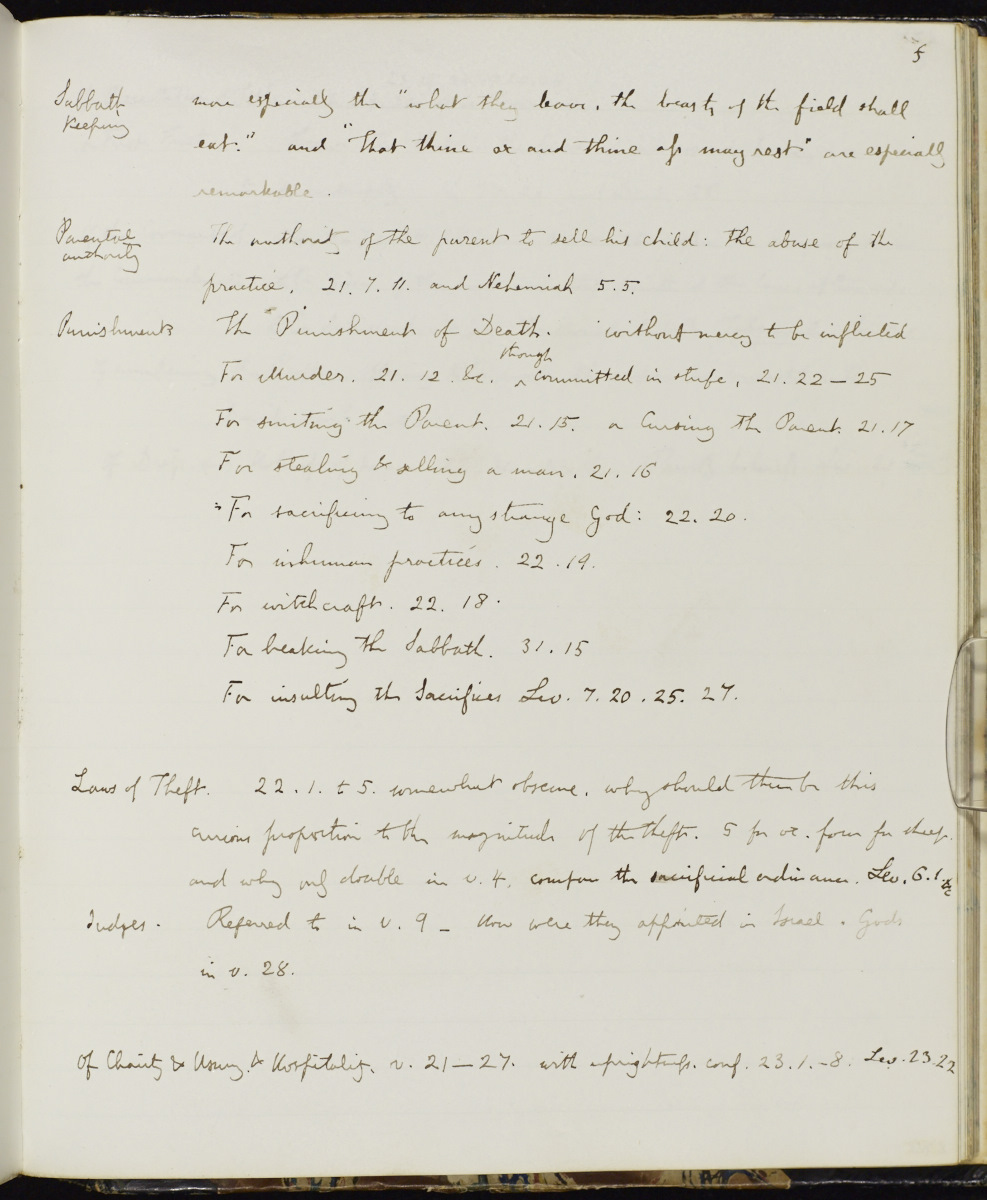 5
Sabbath more especially the "what they leave, the beasts of the field shall
Keeping eat." and "that thine ox and thine ass may rest" are especially
remarkable.
Parental The authority of the parent to sell his child: the abuse of the
authority practice, 21. 7. 11. and Nehemiah 5.5.
Punishments The Punishment of Death. without mercy to be inflicted
For Murder. 21. 12. &c. though committed in strife, 21. 22–25
For smiting the Parent. 21. 15. or Cursing the Parent. 21. 17
For stealing & selling a man. 21. 16
For sacrificing to any strange God: 22. 20.
For inhuman practices. 22. 19.
For witchcraft. 22. 18.
For breaking the Sabbath. 31. 15
For insulting the Sacrifices Lev. 7. 20. 25. 27.
Laws of Theft. 22. 1. to 5. somewhat obscure, why should there be this
curious proportion to the magnitude of the theft. 5 for ox. four for sheep.
and why only double in v. 4. compare the sacrificial ordinance. Lev. 6. 1 &c
Judges. Referred to in v. 9 – How were they appointed in Israel. Gods
in v. 28.
Of Charity & Usury, & Hospitality. v. 21–27. with uprightness. conf. 23. 1.–8. Lev. 23. 22